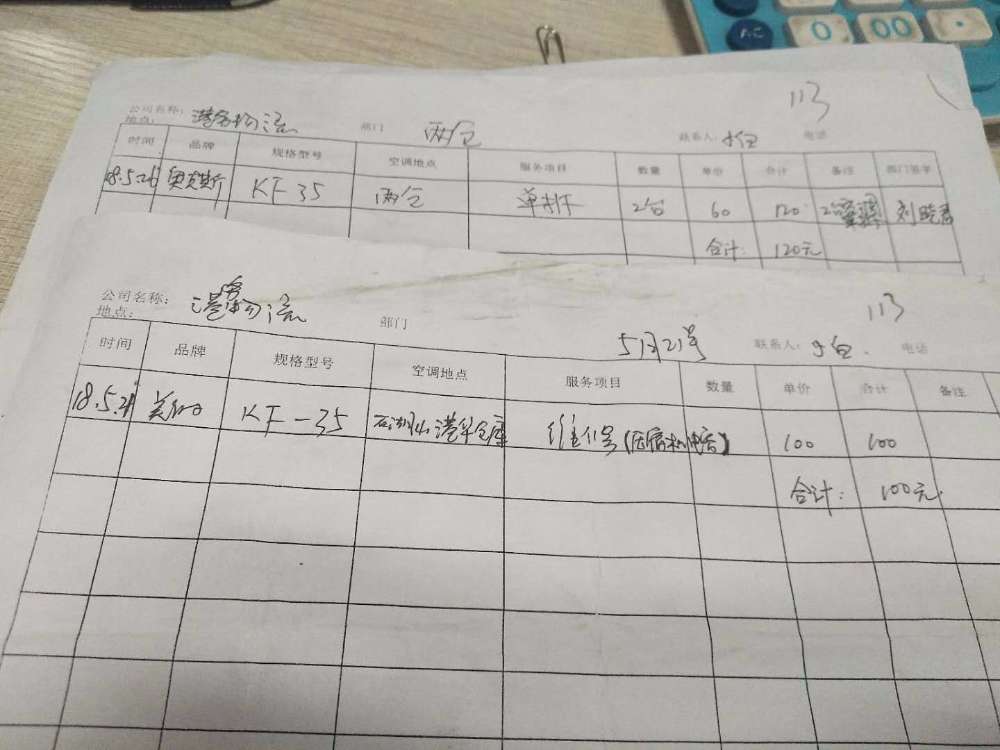 AC 0 00 ·
113
公司名称: 港务物流 部门 两仓 联系人: 电话
地点:
时间 品牌 规格型号 空调地点 服务项目 数量 单价 合计 备注 部门签字
18.5.21 奥克斯 KF 35 两仓 2台 60 120
合计: 120元
113
公司名称: 港务物流 部门 5月21号 联系人: 电话
地点:
时间 品牌 规格型号 空调地点 服务项目 数量 单价 合计 备注
18.5.21 美的 KF-35 石湖山港华仓库 100 100
合计: 100元